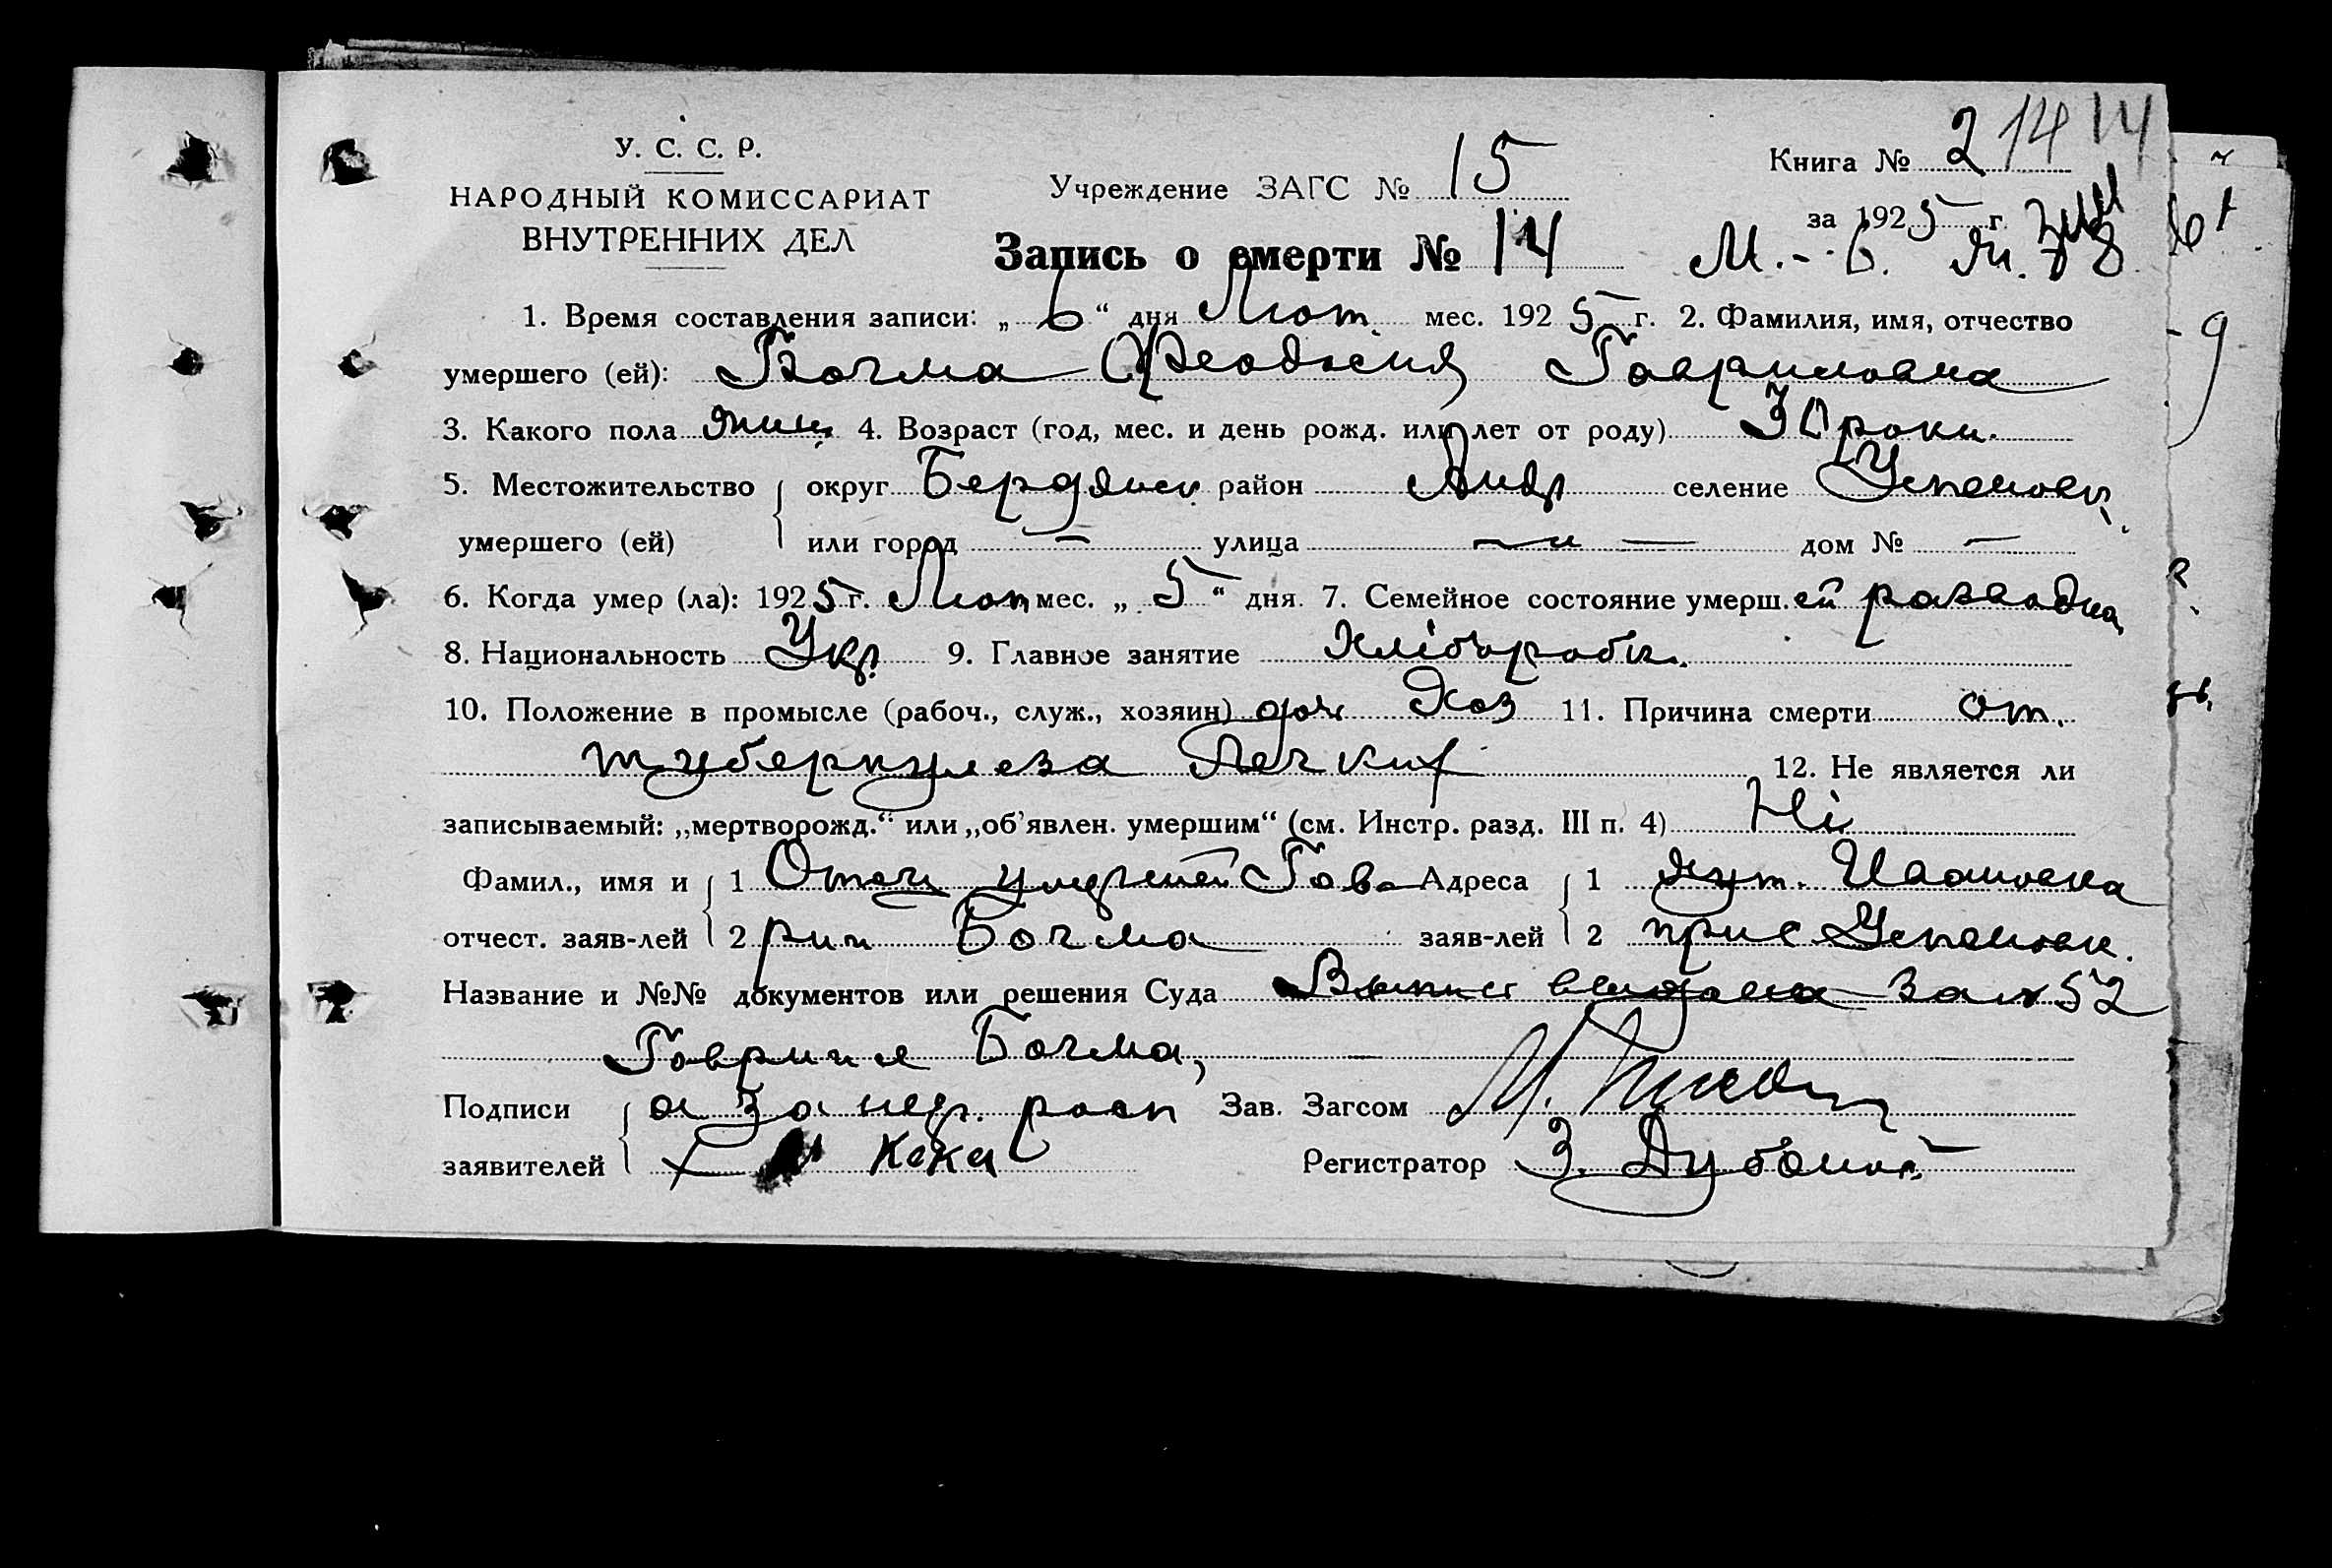 У. С. С. Р.
НАРОДНЫЙ КОМИССАРИАТ
ВНУТРЕННИХ ДЕЛ
Учреждение ЗАГС № 15
Книга № 2 14 14
за 1925 г.
Запись о смерти № 14 М. - 6.
1. Время составления записи: „6“ дня Лют. мес. 1925 г. 2. Фамилия, имя, отчество
умершего (ей): Бочма Феодосия Гавриловна
3. Какого пола 4. Возраст (год, мес. и день рожд. или лет от роду) 30 роки.
5. Местожительство округ Бердянск район Андр селение Успеновк.
умершего (ей) или город — улица — " — дом № —
6. Когда умер (ла): 1925 г. Лют мес. „5“ дня. 7. Семейное состояние умерш. ей разводна
8. Национальность Укр. 9. Главное занятие Хлібороб
10. Положение в промысле (рабоч., служ., хозяин) доч Хоз 11. Причина смерти от.
туберкулеза Легких 12. Не является ли
записываемый: „мертворожд.“ или „об'явлен. умершим“ (см. Инстр. разд. III п. 4) Ні
Фамил., имя и 1 Отец умершей Гов- Адреса 1 хут. Ивановка
отчест. заяв-лей 2 рил Бочма заяв-лей 2 Успеновк.
Название и №№ документов или решения Суда Выпись выдана за № 52
Гаврила Бочма,
Подписи а за негр. росп Зав. Загсом М.
заявителей Регистратор З. Дубовий